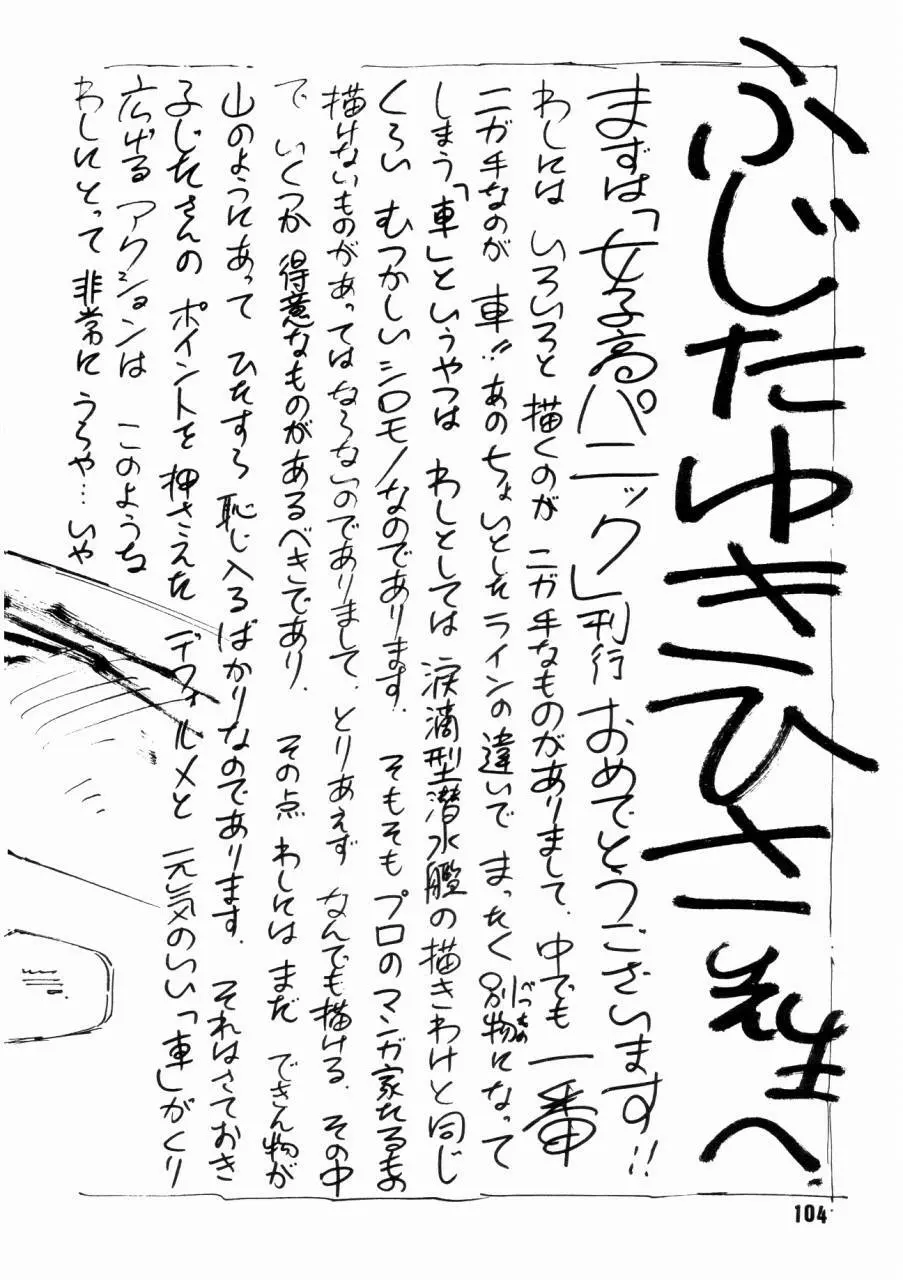 ふじたゆきひさ先生へ
まずは「女子高パニック」刊行おめでとうございます!!
わしには いろいろと 描くのが ニガ手なものがありまして、中でも 一番
ニガ手なのが 車!! あのちょいとしたラインの違いで まったく別物になって
べつもの
しまう「車」というやつは わしとしては 涙滴型潜水艦の描きわけと同じ
くらい むつかしいシロモノなのであります. そもそも プロのマンガ家たるもの
描けないものがあってはならないのでありまして、とりあえず なんでも描ける、その中
で いくつか 得意なものがあるべきであり、 その点 わしには まだ できん物が
山のようにあって ひたすら 恥じ入るばかりなのであります. それはさておき
ふじたさんの ポイントを 押さえた デフォルメと 元気のいい「車」がくり
広げる アクションは このような
わしにとって 非常に うらや…いや
104